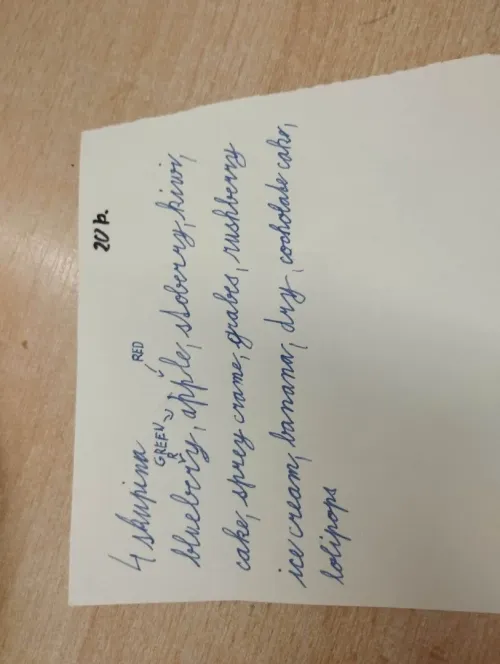 20 p.
4 skupina
GREEN RED
R
blueberry, apple, stoberry, kiwi,
cake, sprey crame, grabes, rushberry
ice cream, banana, dry, cocholate cake,
lolipops